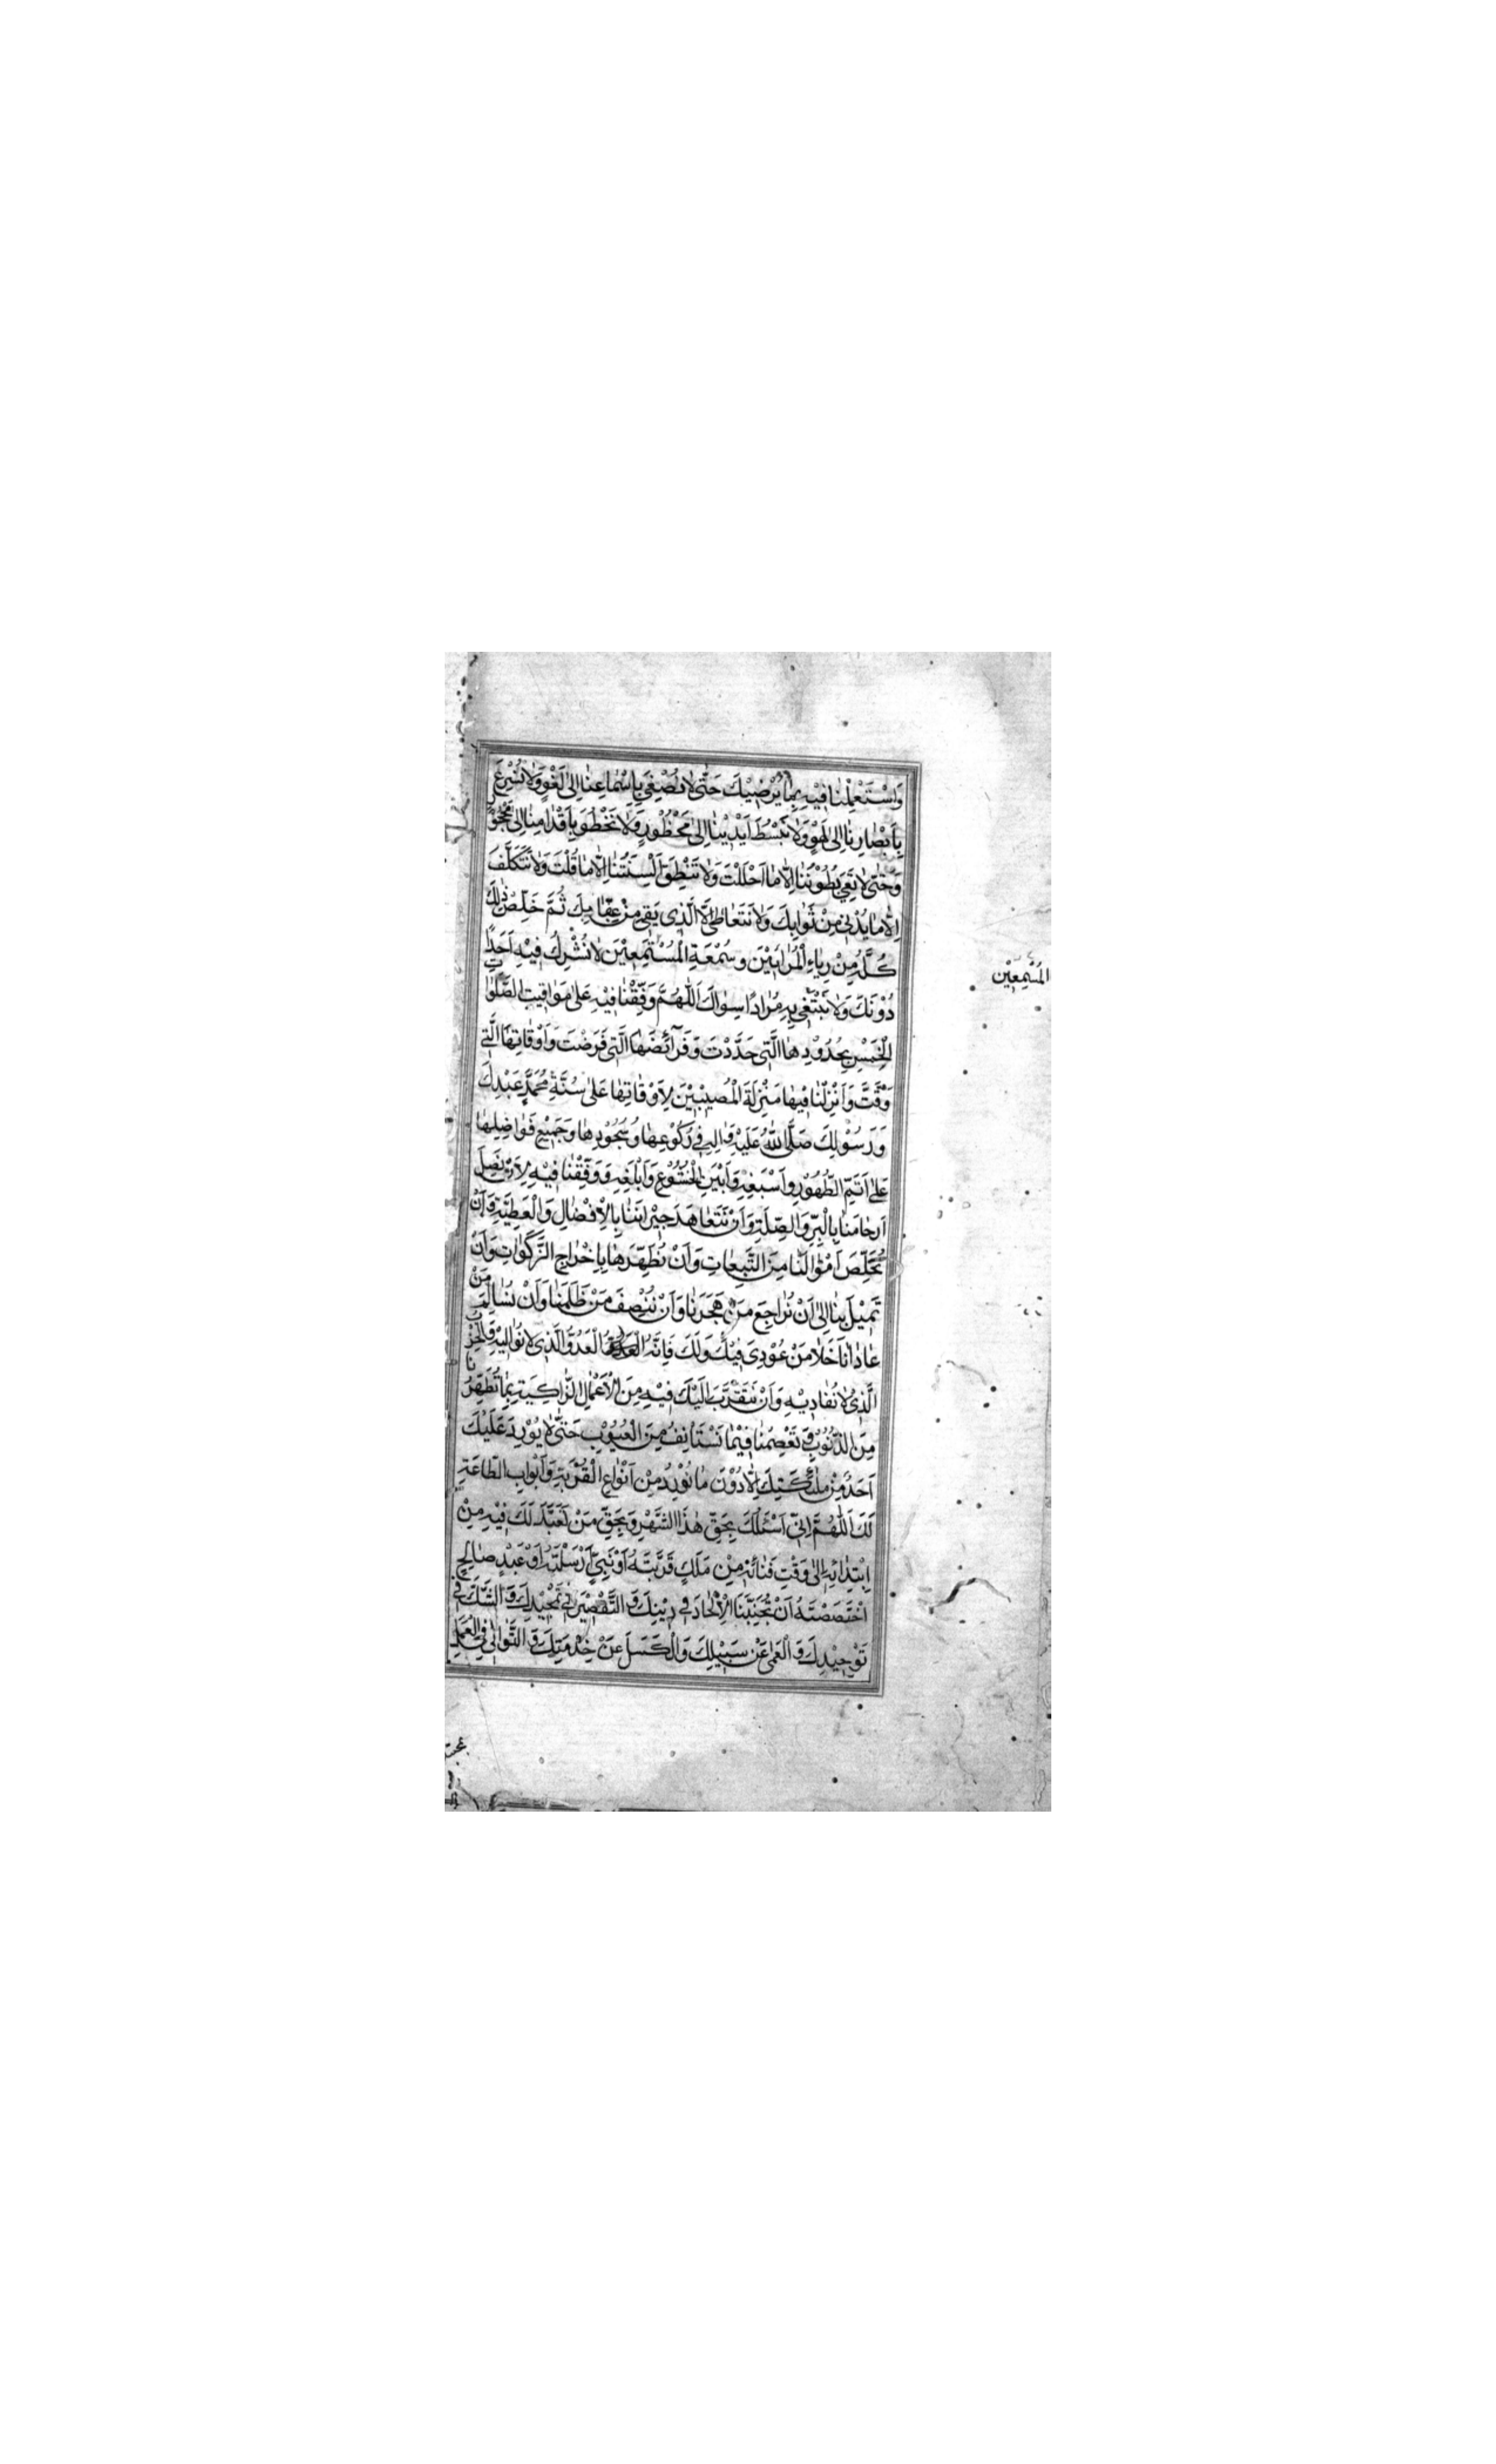 وَاسْتَعْمِلْنَا فِيْهِ بِمَا يُرْضِيْكَ حَتّٰى لَا نُصْغِيَ بِاَسْمَاعِنَا اِلٰى لَغْوٍ وَلَا نُسْرِعَ
بِاَبْصَارِنَا اِلٰى لَهْوٍ وَلَا نَبْسُطَ اَيْدِيَنَا اِلٰى مَحْظُوْرٍ وَلَا نَخْطُوَ بِاَقْدَامِنَا اِلٰى مَحْجُوْرٍ
وَحَتّٰى لَا تَعِيَ بُطُوْنُنَا اِلَّا مَا اَحْلَلْتَ وَلَا تَنْطِقَ اَلْسِنَتُنَا اِلَّا مَا قُلْتَ وَلَا نَتَكَلَّفَ
اِلَّا مَا يُدْنِيْ مِنْ ثَوَابِكَ وَلَا نَتَعَاطٰى اِلَّا الَّذِى يَقِى مِنْ عِقَابِكَ ثُمَّ خَلِّصْ ذٰلِكَ
كُلَّهُ مِنْ رِيَاءِ الْمُرَائِيْنَ وَسُمْعَةِ الْمُسْتَمِعِيْنَ لَا نُشْرِكُ فِيْهِ اَحَدًا
دُوْنَكَ وَلَا نَبْتَغِى بِهِ مُرَادًا سِوَاكَ اَللّٰهُمَّ وَفِّقْنَا فِيْهِ عَلٰى مَوَاقِيْتِ الصَّلَوَاتِ
الْخَمْسِ بِحُدُوْدِهَا الَّتِى حَدَّدْتَ وَفَرَائِضِهَا الَّتِى فَرَضْتَ وَاَوْقَاتِهَا الَّتِى
وَقَّتَّ وَاَنْزِلْنَا فِيهَا مَنْزِلَةَ الْمُصِيْبِيْنَ لِاَوْقَاتِهَا عَلٰى سُنَّةِ مُحَمَّدٍ عَبْدِكَ
وَرَسُوْلِكَ صَلَّى اللّٰهُ عَلَيْهِ وَاٰلِهِ فِى رُكُوْعِهَا وَسُجُوْدِهَا وَجَمِيْعِ فَوَاضِلِهَا
عَلٰى اَتَمِّ الطُّهُوْرِ وَاَسْبَغِهِ وَاَبْيَنِ الْخُشُوْعِ وَاَبْلَغِهِ وَوَفِّقْنَا فِيْهِ لِاَنْ نَصِلَ
اَرْحَامَنَا بِالْبِرِّ وَالصِّلَةِ وَاَنْ نَتَعَاهَدَ جِيْرَانَنَا بِالْاِفْضَالِ وَالْعَطِيَّةِ وَاَنْ
نُخَلِّصَ اَمْوَالَنَا مِنَ التَّبِعَاتِ وَاَنْ نُطَهِّرَهَا بِاِخْرَاجِ الزَّكَوَاتِ وَاَنْ
تَمِيْلَ بِنَا اِلٰى اَنْ نُرَاجِعَ مَنْ هَجَرَنَا وَاَنْ نُنْصِفَ مَنْ ظَلَمَنَا وَاَنْ نُسَالِمَ مَنْ
عَادَانَا خَلَا مَنْ عُوْدِىَ فِيْكَ وَلَكَ فَاِنَّهُ الْعَدُوُّ الَّذِى لَا نُوَالِيْهِ وَالْحِزْبُ
الَّذِى لَا نُصَافِيْهِ وَاَنْ نَتَقَرَّبَ اِلَيْكَ فِيْهِ مِنَ الْاَعْمَالِ الزَّاكِيَةِ بِمَا تُطَهِّرُنَا
مِنَ الذُّنُوْبِ وَتَعْصِمُنَا فِيْمَا نَسْتَاْنِفُ مِنَ الْعُيُوْبِ حَتّٰى لَا يُوْرِدَ عَلَيْكَ
اَحَدٌ مِنْ مَلٰئِكَتِكَ اِلَّا دُوْنَ مَا نُوْرِدُ مِنْ اَنْوَاعِ الْقُرْبَةِ وَاَبْوَابِ الطَّاعَةِ
لَكَ اَللّٰهُمَّ اِنِّى اَسْئَلُكَ بِحَقِّ هٰذَا الشَّهْرِ وَبِحَقِّ مَنْ تَعَبَّدَ لَكَ فِيْهِ مِنْ
اِبْتِدَائِهِ اِلٰى وَقْتِ فَنَائِهِ مِنْ مَلَكٍ قَرَّبْتَهُ اَوْ نَبِىٍّ اَرْسَلْتَهُ اَوْ عَبْدٍ صَالِحٍ
اخْتَصَصْتَهُ اَنْ تُجَنِّبَنَا الْاِلْحَادَ فِى دِيْنِكَ وَالتَّقْصِيْرَ فِى تَمْجِيْدِكَ وَالشَّكَّ فِى
تَوْحِيْدِكَ وَالْعَمٰى عَنْ سَبِيْلِكَ وَالْكَسَلَ عَنْ خِدْمَتِكَ وَالتَّوَانِى فِى الْعَمَلِ
الْمُسْمِعِيْن